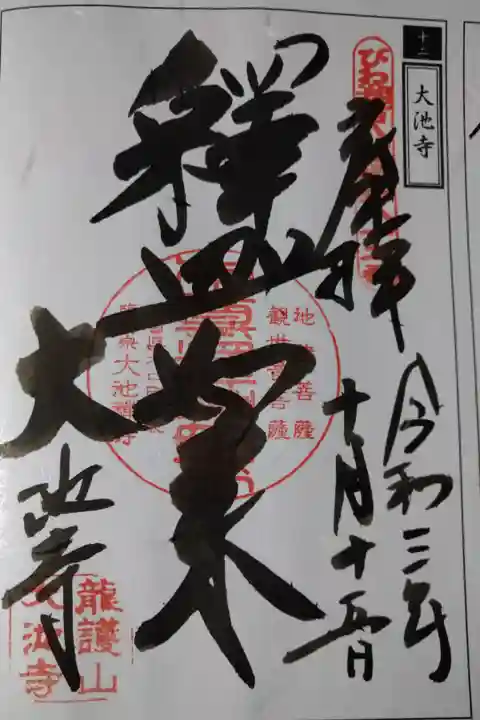 十二
大池寺
奉拝
令和三年
十月十五日
釋迦如来
大池寺
地蔵菩薩
観世音菩薩
臨済宗大池禅寺
龍護山
大池寺